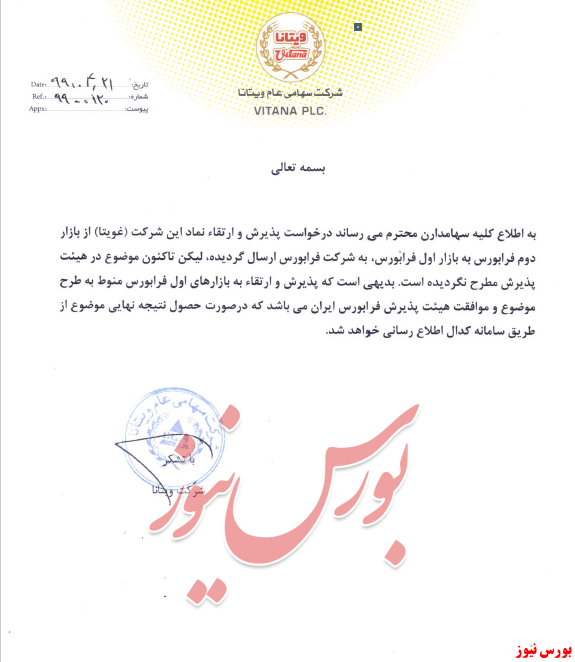 ویتانا
Vitana
شرکت سهامی عام ویتانا
VITANA PLC.
تاریخ: ۹۹.۰۴.۲۱ Date:
شماره: Ref.:
پیوست: Apps:
بسمه تعالی
به اطلاع کلیه سهامدارن محترم می رساند درخواست پذیرش و ارتقاء نماد این شرکت (غویتا) از بازار
دوم فرابورس به بازار اول فرابورس، به شرکت فرابورس ارسال گردیده، لیکن تاکنون موضوع در هیئت
پذیرش مطرح نگردیده است. بدیهی است که پذیرش و ارتقاء به بازارهای اول فرابورس منوط به طرح
موضوع و موافقت هیئت پذیرش فرابورس ایران می باشد که درصورت حصول نتیجه نهایی موضوع از
طریق سامانه کدال اطلاع رسانی خواهد شد.
شرکت سهامی عام ویتانا
با تشکر
شرکت ویتانا
بورس نیوز
بورس نیوز